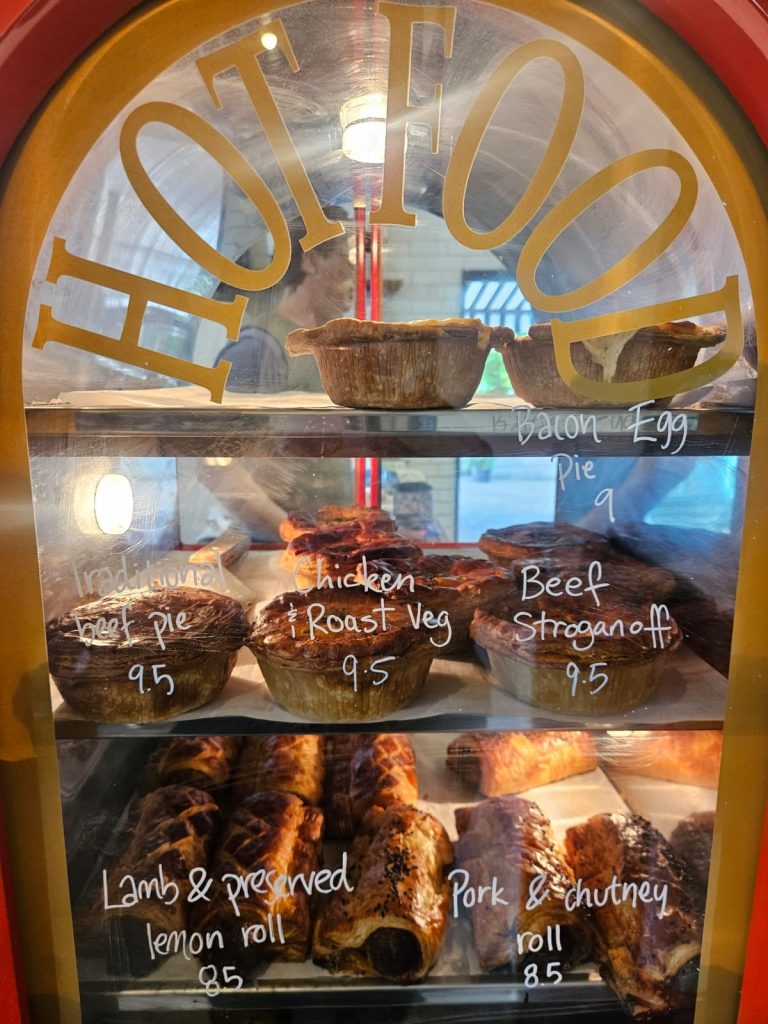 HOT FOOD
Bacon Egg
Pie
9
Traditional
beef pie
9.5
Chicken
& Roast Veg
9.5
Beef
Stroganoff
9.5
Lamb & preserved
lemon roll
8.5
Pork & chutney
roll
8.5